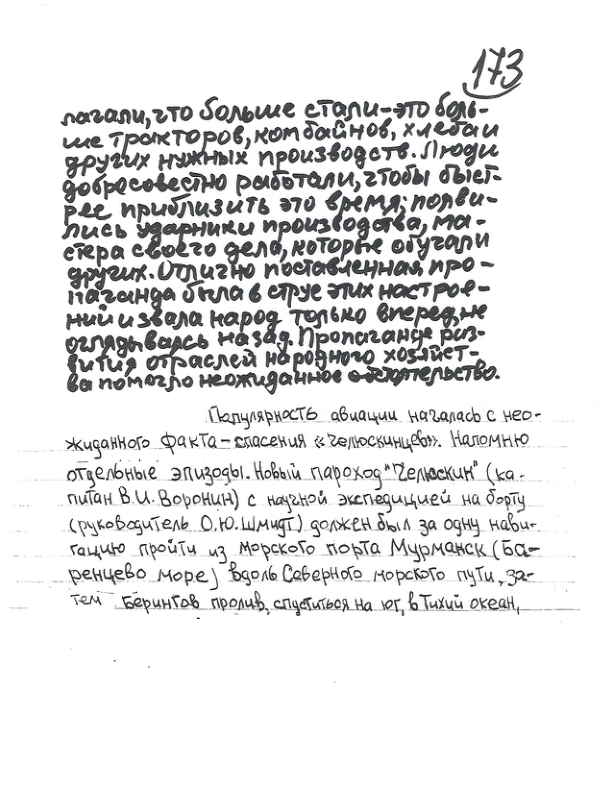 173
лагали, что больше стали-это боль-
ше тракторов, комбайнов, хлеба и
других нужных производств. Люди
добросовестно работали, чтобы быст-
рее приблизить это время; появи-
лись ударники производства, ма-
стера своего дела, которые обучали
других. Отлично поставленная про-
паганда была в струе этих настрое-
ний и звала народ только вперед, не
оглядываясь назад. Пропаганде раз-
вития отраслей народного хозяйст-
ва помогло неожиданное обстоятельство.
Популярность авиации началась с нео-
жиданного факта-спасения «челюскинцев». Напомню
отдельные эпизоды. Новый пароход "Челюскин" (ка-
питан В.И. Воронин) с научной экспедицией на борту
(руководитель О.Ю. Шмидт) должен был за одну нави-
гацию пройти из морского порта Мурманск (Ба-
ренцево море) вдоль Северного морского пути, за-
тем Берингов пролив, спуститься на юг, в Тихий океан,